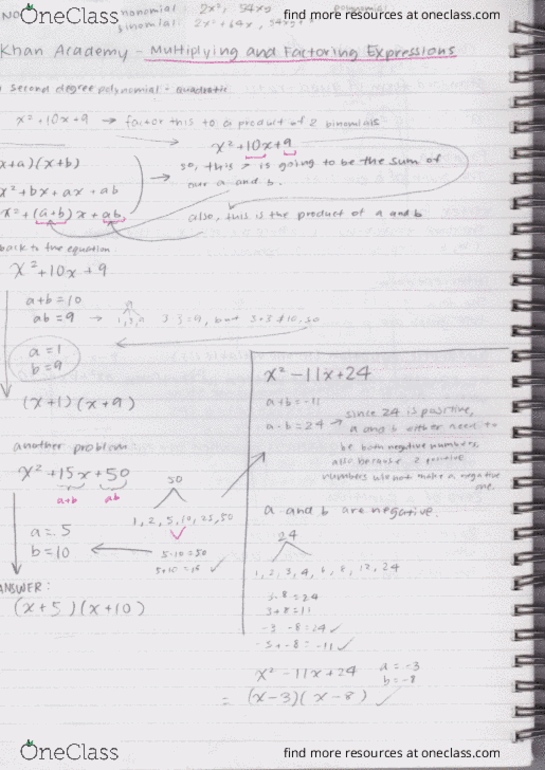 OneClass
find more resources at oneclass.com
monomial: 2x², 54xy
binomial: 2x² + 64x,
Khan Academy - Multiplying and Factoring Expressions
second degree polynomial - quadratic
x² + 10x + 9 → factor this to a product of 2 binomials
x² + 10x + 9
x+a)(x+b)
so, this is going to be the sum of
our a and b.
x² + bx + ax + ab
x² + (a+b)x + ab
also, this is the product of a and b
back to the equation
x² + 10x + 9
a+b = 10
ab = 9 → 3·3=9, but 3+3≠10, so
9
1, 3, 9
a = 1
b = 9
(x+1)(x+9)
another problem
x² + 15x + 50
a+b ab
50
1, 2, 5, 10, 25, 50
5·10 = 50
5+10 = 15 ✓
a = 5
b = 10
ANSWER:
(x+5)(x+10)
x² - 11x + 24
a+b = -11
a·b = 24 → since 24 is positive,
a and b either need to
be both negative numbers,
also because 2 positive
numbers will not make a negative
one.
a and b are negative.
24
1, 2, 3, 4, 6, 8, 12, 24
3·8 = 24
3+8 = 11
-3·-8 = 24 ✓
-3+-8 = -11 ✓
x² - 11x + 24
a = -3
b = -8
= (x-3)(x-8) ✓
OneClass
find more resources at oneclass.com